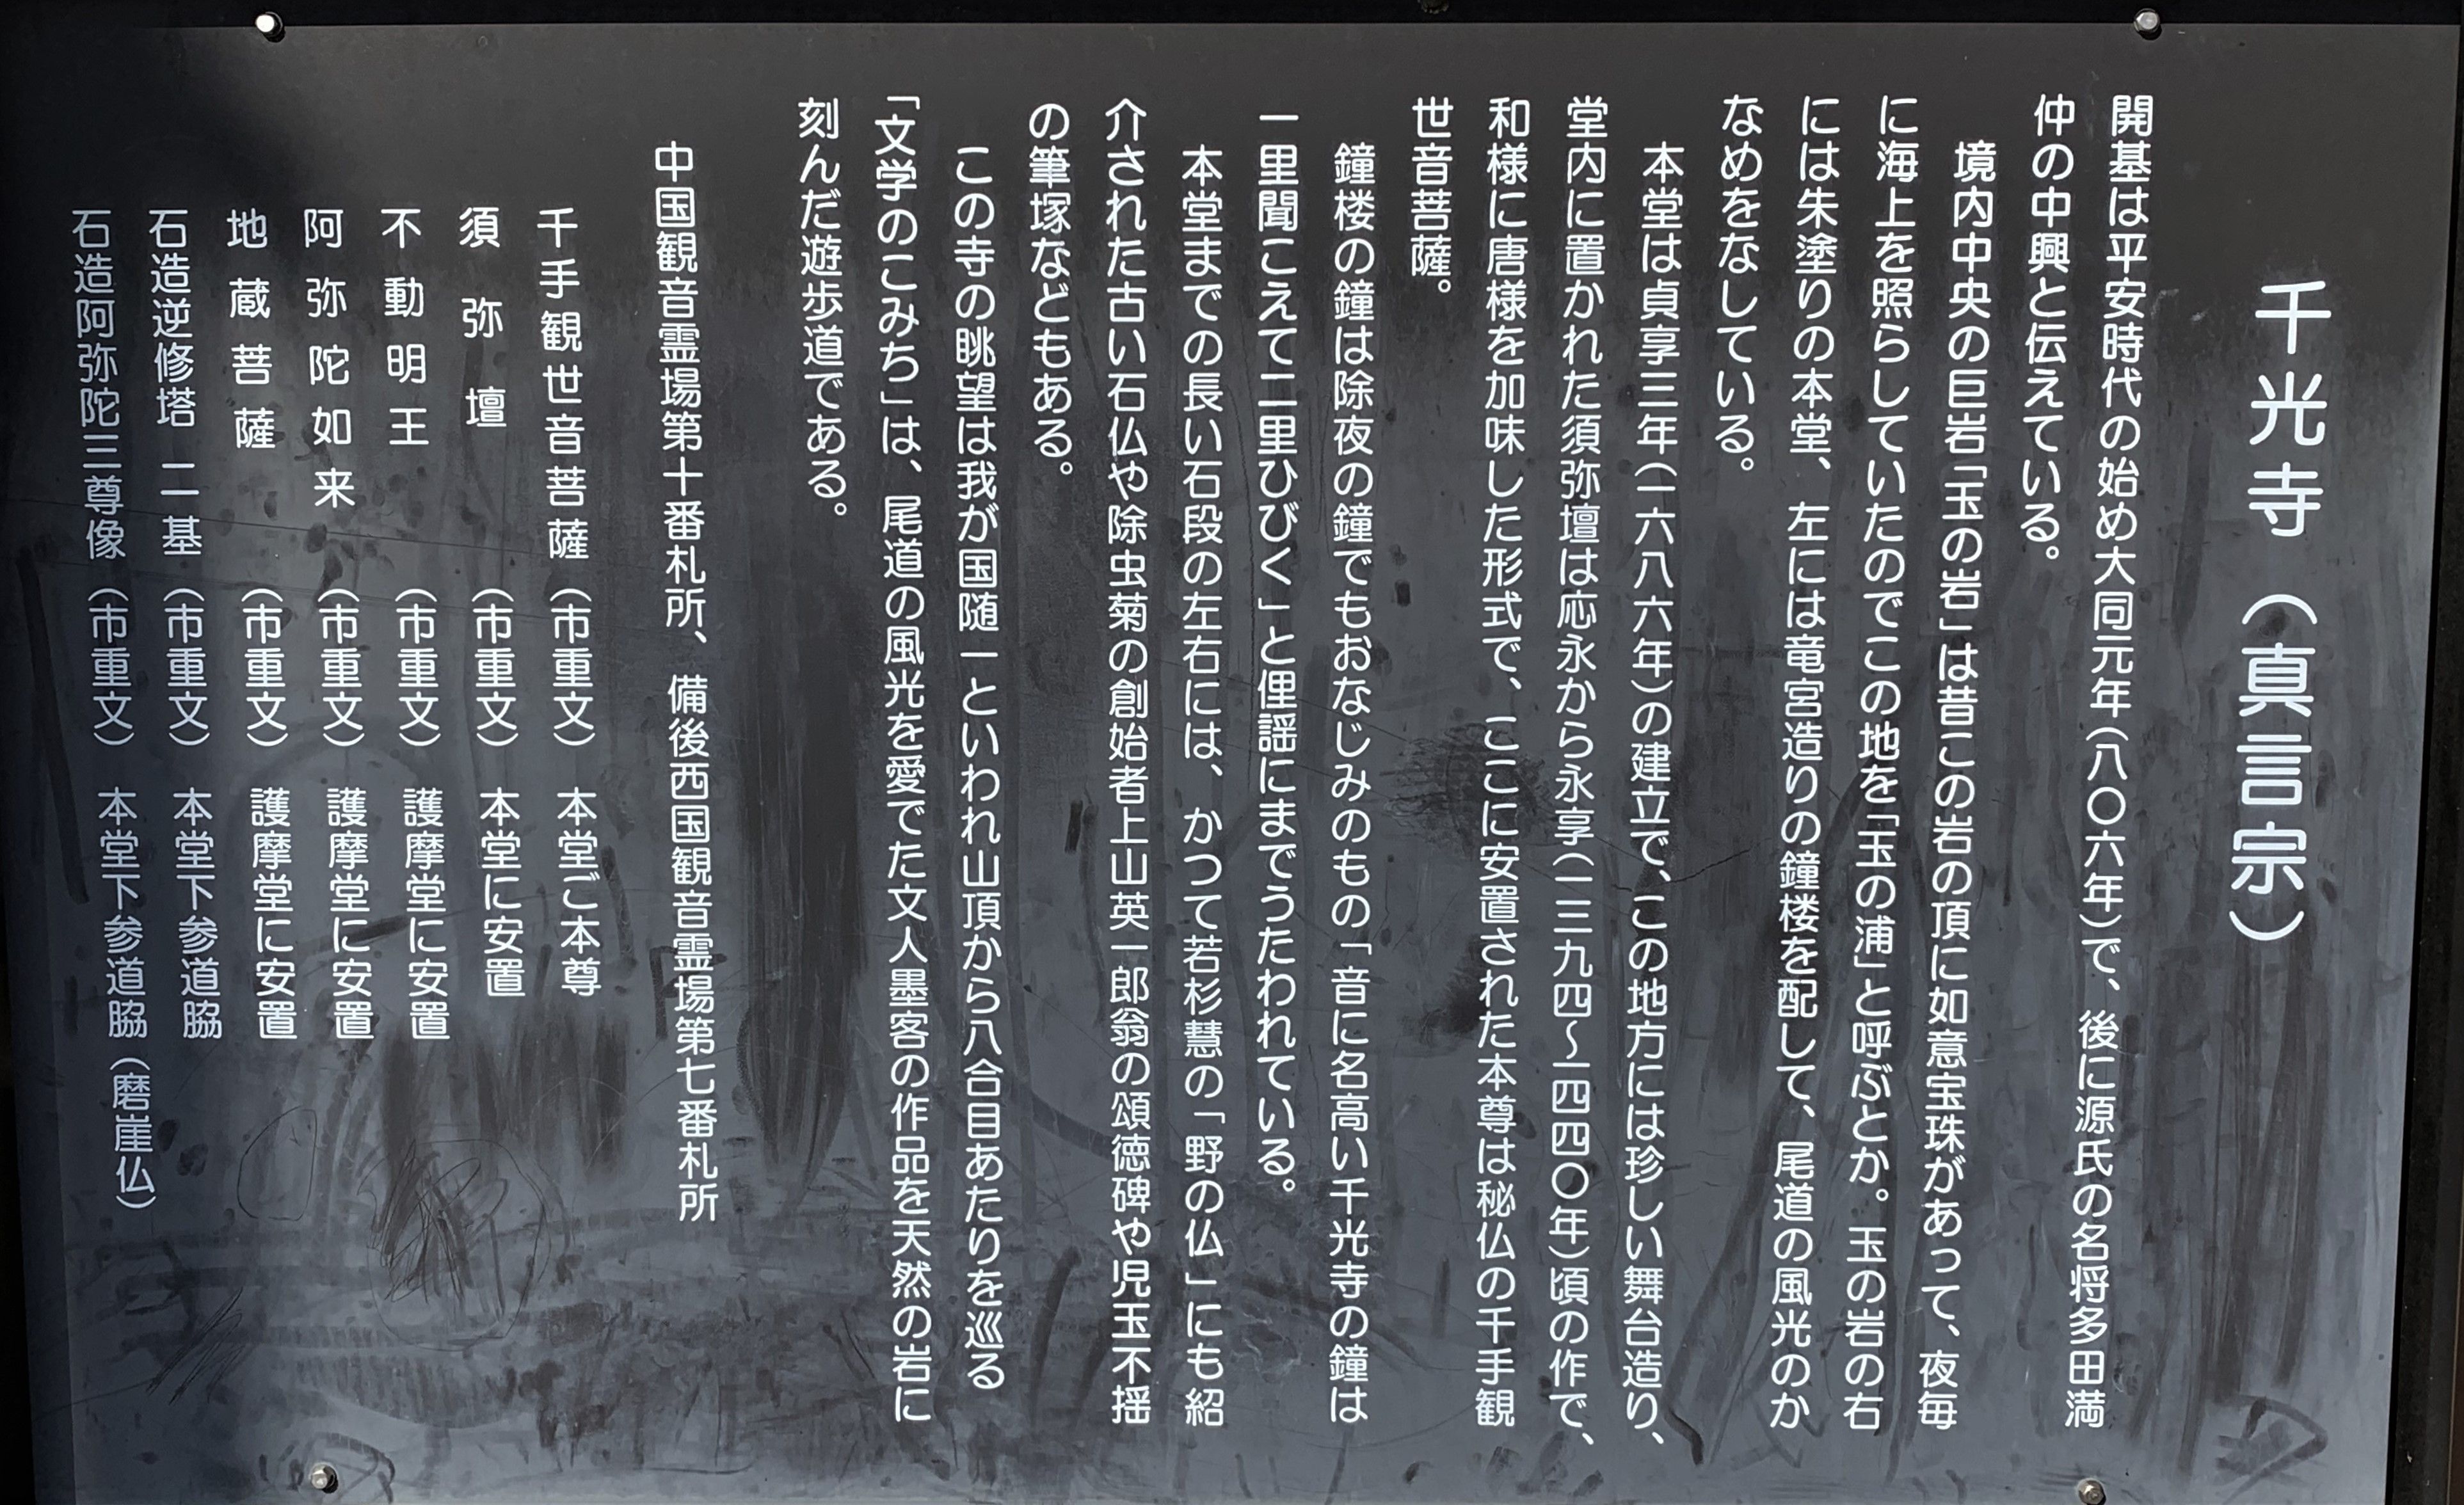 千光寺（真言宗）
開基は平安時代の始め大同元年（八〇六年）で、後に源氏の名将多田満
仲の中興と伝えている。
境内中央の巨岩「玉の岩」は昔この岩の頂に如意宝珠があって、夜毎
に海上を照らしていたのでこの地を「玉の浦」と呼ぶとか。玉の岩の右
には朱塗りの本堂、左には竜宮造りの鐘楼を配して、尾道の風光のか
なめをなしている。
本堂は貞享三年（一六八六年）の建立で、この地方には珍しい舞台造り、
堂内に置かれた須弥壇は応永から永享（一三九四〜一四四〇年）頃の作で、
和様に唐様を加味した形式で、ここに安置された本尊は秘仏の千手観
世音菩薩。
鐘楼の鐘は除夜の鐘でもおなじみのもの「音に名高い千光寺の鐘は
一里聞こえて二里ひびく」と俚謡にまでうたわれている。
本堂までの長い石段の左右には、かつて若杉慧の「野の仏」にも紹
介された古い石仏や除虫菊の創始者上山英一郎翁の頌徳碑や児玉不揺
の筆塚などもある。
この寺の眺望は我が国随一といわれ山頂から八合目あたりを巡る
「文学のこみち」は、尾道の風光を愛でた文人墨客の作品を天然の岩に
刻んだ遊歩道である。
中国観音霊場第十番札所、備後西国観音霊場第七番札所
千手観世音菩薩（市重文）本堂ご本尊
須弥壇（市重文）本堂に安置
不動明王（市重文）護摩堂に安置
阿弥陀如来（市重文）護摩堂に安置
地蔵菩薩（市重文）護摩堂に安置
石造逆修塔 二基（市重文）本堂下参道脇
石造阿弥陀三尊像（市重文）本堂下参道脇（磨崖仏）